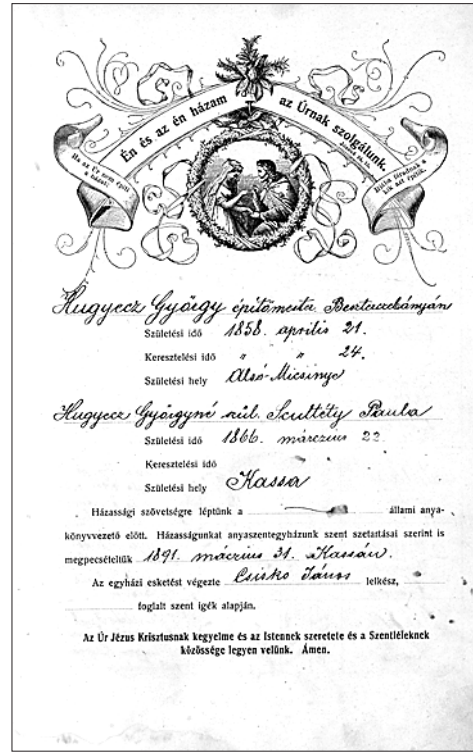 Én és az én házam az Úrnak szolgálunk.
Ha az Úr nem építi
a házat:
hiába fáradnak a
kik azt építik.
Hugyecz György építőmester Beszterczebányán
Születési idő 1858. április 21.
Keresztelési idő " " 24.
Születési hely Alsó-Micsinye
Hugyecz Györgyné szül. Scultéty Paula
Születési idő 1866. márczius 22
Keresztelési idő
Születési hely Kassa
Házassági szövetségre léptünk a állami anya-
könyvvezető előtt. Házasságunkat anyaszentegyházunk szent szertartásai szerint is
megpecsételtük 1891. márczius 31. Kassán.
Az egyházi esketést végezte Csiskó János lelkész,
foglalt szent igék alapján.
Az Úr Jézus Krisztusnak kegyelme és az Istennek szeretete és a Szentléleknek
közössége legyen velünk. Ámen.